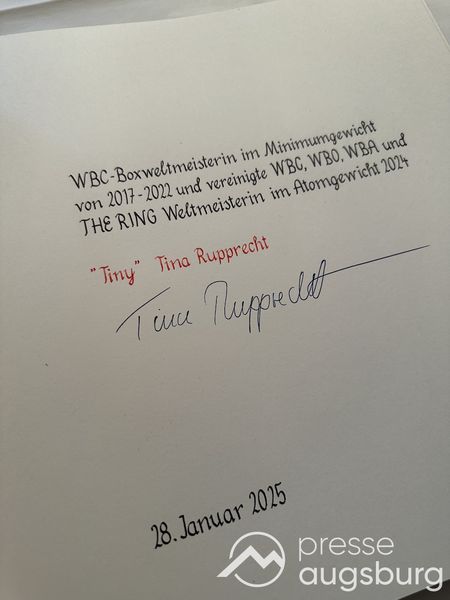 WBC-Boxweltmeisterin im Minimumgewicht
von 2017-2022 und vereinigte WBC, WBO, WBA und
THE RING Weltmeisterin im Atomgewicht 2024
"Tiny" Tina Rupprecht
Tina Rupprecht
28. Januar 2025
presse
augsburg